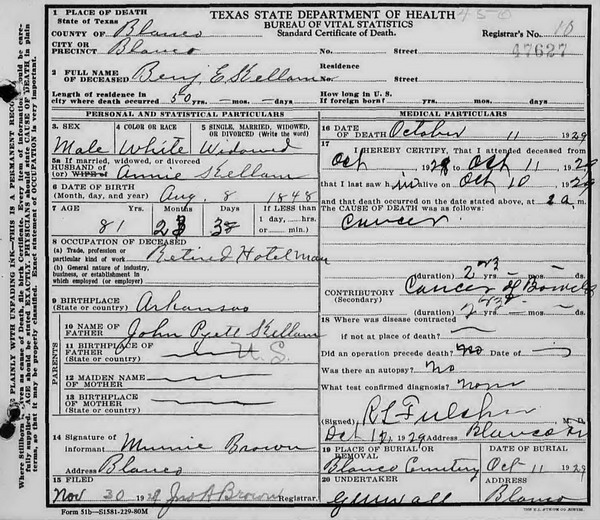 1 PLACE OF DEATH
State of Texas
TEXAS STATE DEPARTMENT OF HEALTH
BUREAU OF VITAL STATISTICS
Standard Certificate of Death.
COUNTY OF Blanco
Registrar's No. 16
CITY OR PRECINCT Blanco No. Street 47627
2 FULL NAME OF DECEASED Benj. E. Kellam Residence No. Street
Length of residence in city where death occurred 50 yrs. — mos. — days How long in U. S. if foreign born? yrs. mos. days
PERSONAL AND STATISTICAL PARTICULARS
3. SEX Male
4 COLOR OR RACE White
5 SINGLE, MARRIED, WIDOWED, OR DIVORCED (Write the word) Widowed
5a If married, widowed, or divorced
HUSBAND OF (or) WIFE OF Annie Kellam
6 DATE OF BIRTH (Month, day, and year) Aug. 8 1848
7 AGE Years 81 Months 2 Days 3 If LESS than 1 day, hrs. or min.
8 OCCUPATION OF DECEASED
(a) Trade, profession or particular kind of work Retired Hotel man
(b) General nature of industry, business, or establishment in which employed (or employer)
9 BIRTHPLACE (State or country) Arkansas
PARENTS
10 NAME OF FATHER John Kellam
11 BIRTHPLACE OF FATHER (State or country) U. S.
12 MAIDEN NAME OF MOTHER
13 BIRTHPLACE OF MOTHER (State or country)
14 Signature of informant Minnie Brown
Address Blanco
15 FILED Nov 30 1929 Jno A Brown Registrar.
Form 51b—S1581-229-80M
MEDICAL PARTICULARS
16 DATE OF DEATH October 11 1929
17 I HEREBY CERTIFY, That I attended deceased from
Oct 1928 to Oct 11 1929
that I last saw him alive on Oct 10 1929
and that death occurred on the date stated above, at 2 a. m.
The CAUSE OF DEATH was as follows:
Cancer
(duration) 2 yrs. — mos. — ds.
CONTRIBUTORY (Secondary) Cancer of Bowels
(duration) 2 yrs. — mos. — ds.
18 Where was disease contracted
if not at place of death?
Did an operation precede death? No Date of
Was there an autopsy? No
What test confirmed diagnosis? None
(Signed) M. D.
Oct 12, 1929 Address Blanco
19 PLACE OF BURIAL OR REMOVAL Blanco Cemetery
DATE OF BURIAL Oct 11 1929
20 UNDERTAKER
ADDRESS Blanco